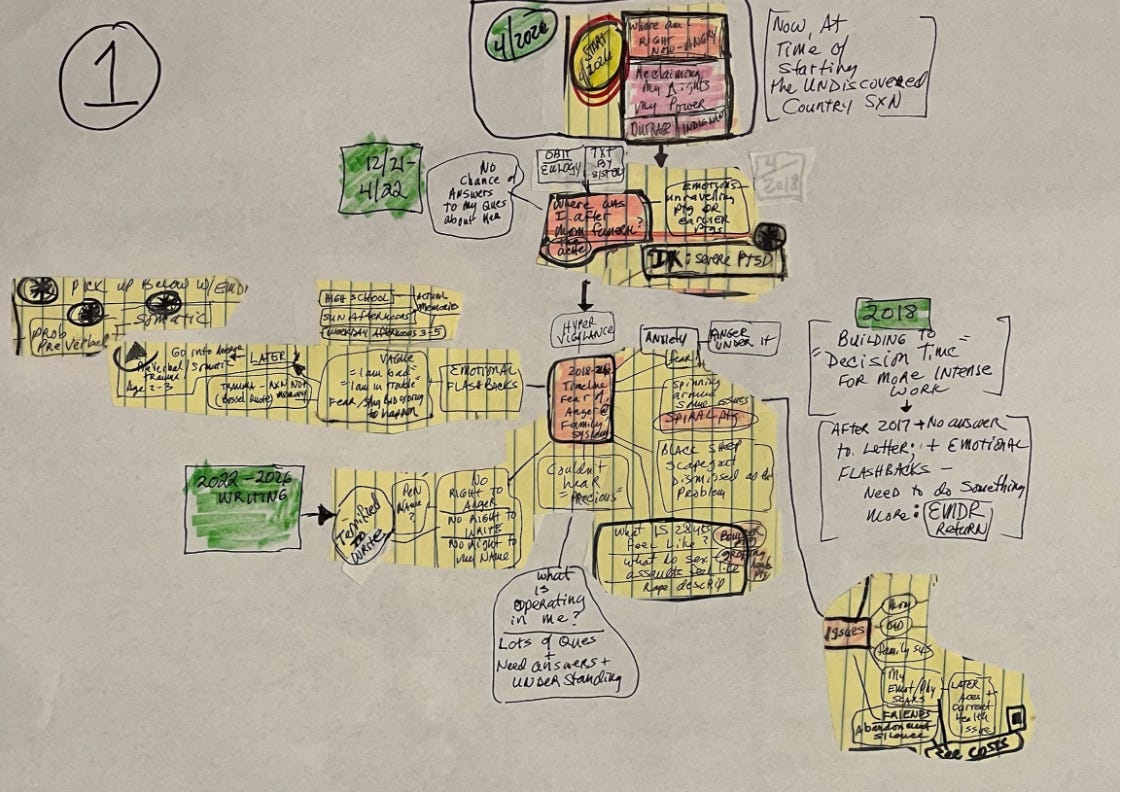 1
4/2026
START
4/2026
Where am I
RIGHT
NOW-ANGRY
Reclaiming
My Rights
My Power
OUTRAGE
INDIGNANT
Now, At
Time of
starting
the UNDiscovered
Country SXN
12/21-
4/22
No
Chance of
Answers
to My Ques
about Her
OBIT
EULOGY
TXT
BY
SISTER
Where was
I after
Mom funeral?
EMOTIONS
unravelling
ptg OR
earlier
ptgs
4/
2018
DX: severe PTSD
PICK UP Below w/EMDR
Somatic
prob
PreVerbal
HIGH SCHOOL
SUN AFTERNOONS
WORKDAY AFTERNOONS 3-5
ACTUAL
Memories
GO into
LATER
Preverbal
Trauma
Somatic
Age 2-3
TRAUMA - RXN NOT
memory
(Bessel Quote)
VAGUE
"I am bad"
"I am in trouble"
FEAR/Stg bad going
to happen
EMOTIONAL
FLASHBACKS
HYPER
VIGILANCE
Timeline
Fear of
Anger @
Family
system
Anxiety
fear
ANGER
UNDER it
Spinning
around
same issues
SPIRAL ptg
BLACK SHEEP
Scapegoat
Dismissed as the
Problem
Couldn't
hear
"PRECIOUS"
2018
BUILDING TO
"Decision Time"
FOR MORE INTENSE
WORK
AFTER 2017 → No answer
to Letter; + EMOTIONAL
FLASHBACKS -
Need to do Something
MORE:
EMDR
RETURN
2022-2026
WRITING
Terrified
to
Write
PEN
NAME
?
NO
RIGHT TO
ANGER
NO RIGHT TO
WRITE
NO Right to
my NAME
What is 28 yrs
feel like?
what do sex
assaults feel
like
Rape descrip
What
is
operating
in me?
Lots of Ques
+
Need answers +
UNDERstanding
Issues
Mom
DAD
family sys
My
Emot/Phy
SCARS
LATER
Current
Health
Issue
FRIENDS
Abandonment
Silence
COSTS